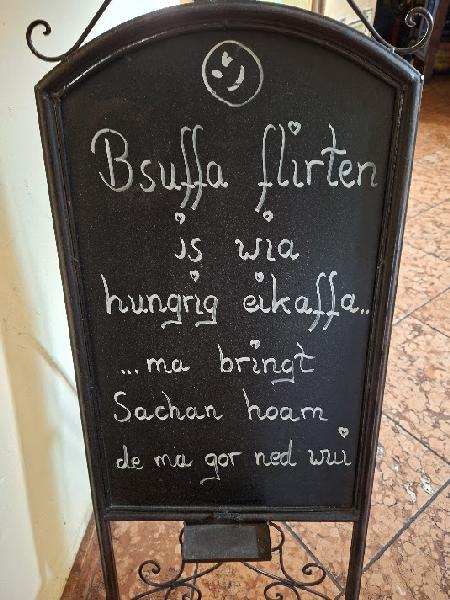 Bsuffa flirten
is wia
hungrig eikaffa..
...ma bringt
Sachan hoam
de ma gor ned wui